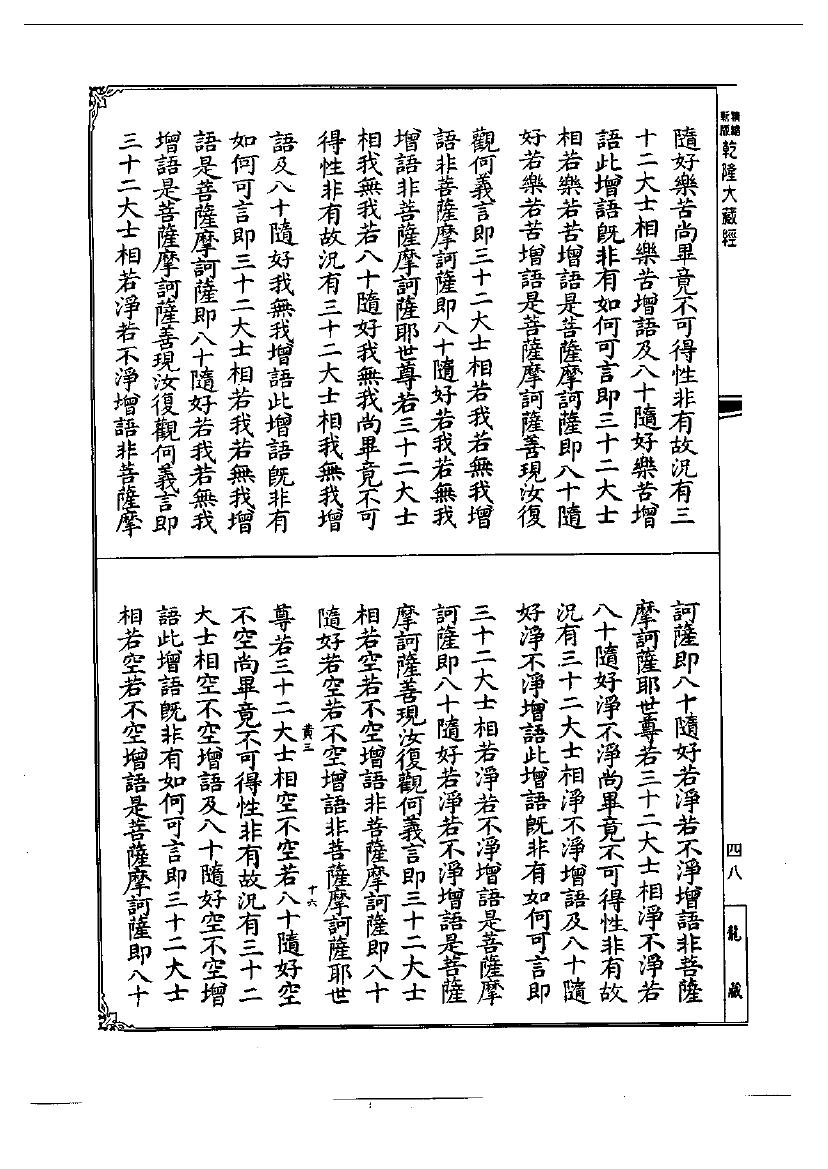 新版
精繕
乾隆大藏經
隨好樂苦尚畢竟不可得性非有故況有三
十二大士相樂苦增語及八十隨好樂苦增
語此增語既非有如何可言即三十二大士
相若樂若苦增語是菩薩摩訶薩即八十隨
好若樂若苦增語是菩薩摩訶薩善現汝復
觀何義言即三十二大士相若我若無我增
語非菩薩摩訶薩即八十隨好若我若無我
增語非菩薩摩訶薩耶世尊若三十二大士
相我無我若八十隨好我無我尚畢竟不可
得性非有故況有三十二大士相我無我增
語及八十隨好我無我增語此增語既非有
如何可言即三十二大士相若我若無我增
語是菩薩摩訶薩即八十隨好若我若無我
增語是菩薩摩訶薩善現汝復觀何義言即
三十二大士相若淨若不淨增語非菩薩摩
訶薩即八十隨好若淨若不淨增語非菩薩
摩訶薩耶世尊若三十二大士相淨不淨若
八十隨好淨不淨尚畢竟不可得性非有故
況有三十二大士相淨不淨增語及八十隨
好淨不淨增語此增語既非有如何可言即
三十二大士相若淨若不淨增語是菩薩摩
訶薩即八十隨好若淨若不淨增語是菩薩
摩訶薩善現汝復觀何義言即三十二大士
相若空若不空增語非菩薩摩訶薩即八十
隨好若空若不空增語非菩薩摩訶薩耶世
黃三
十六
尊若三十二大士相空不空若八十隨好空
不空尚畢竟不可得性非有故況有三十二
大士相空不空增語及八十隨好空不空增
語此增語既非有如何可言即三十二大士
相若空若不空增語是菩薩摩訶薩即八十
四八
龍藏